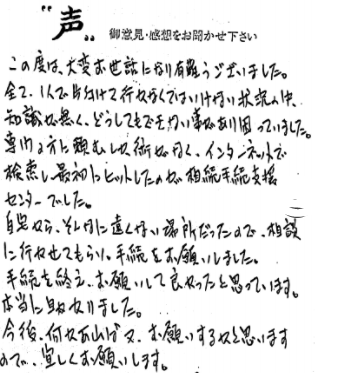 "声" 御意見・感想をお聞かせ下さい
この度は、大変お世話になり有難うございました。
全て、1人で片付けて行かなくてはいけない状況の中、
知識が無く、どうしてもできない事があり困っていました。
専門の方に頼むしか術がなく、インターネットで
検索し最初にヒットしたのが相続手続支援
センターでした。
自宅から、そんなに遠くない場所だったので、相談
に行かせてもらい、手続をお願いしました。
手続を終え、お願いして良かったと思っています。
本当に助かりました。
今後、何か有れば又、お願いするかと思います
ので、宜しくお願いします。